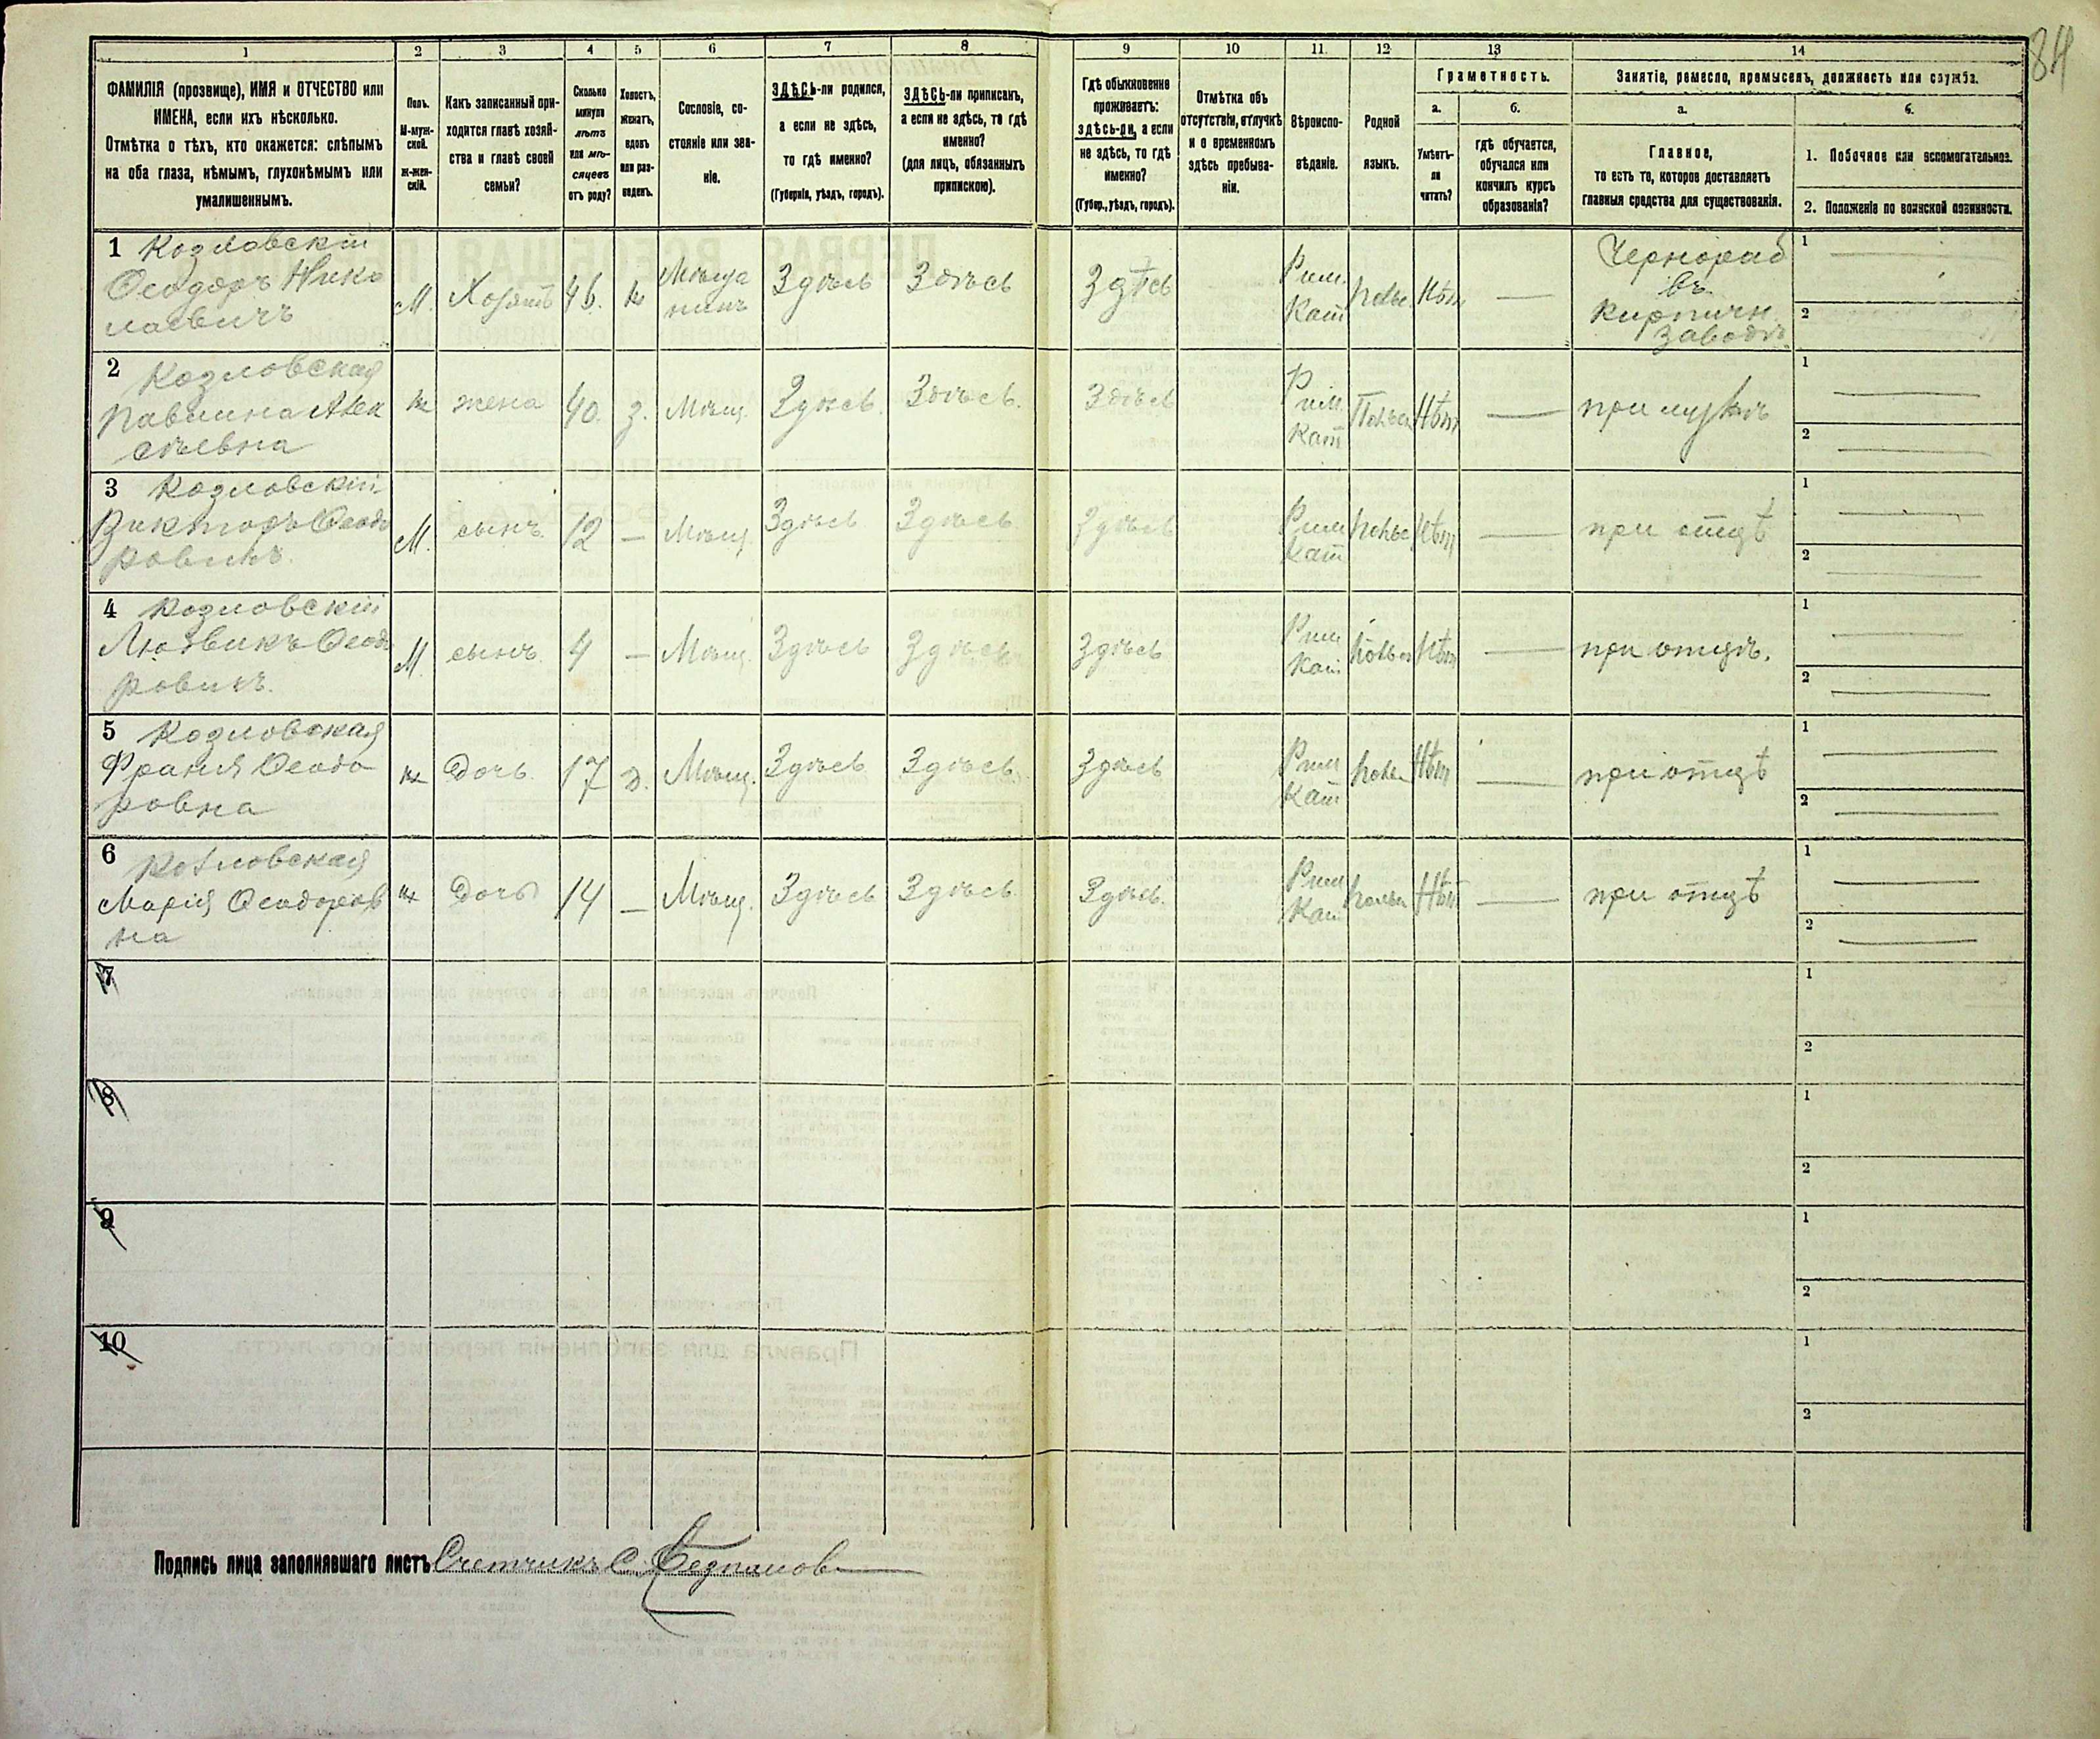 84
1 2 3 4 5 6 7 8 9 10 11 12 13 14
ФАМИЛІЯ (прозвище), ИМЯ и ОТЧЕСТВО или
ИМЕНА, если ихъ нѣсколько.
Отмѣтка о тѣхъ, кто окажется: слѣпымъ
на оба глаза, нѣмымъ, глухонѣмымъ или
умалишеннымъ.
Полъ.
М-муж-
ской.
ж-жен-
скій.
Какъ записанный при-
ходится главѣ хозяй-
ства и главѣ своей
семьи?
Сколько
минуло
лѣтъ
или мѣ-
сяцевъ
отъ роду?
Холостъ,
женатъ,
вдовъ
или раз-
веденъ.
Сословіе, со-
стояніе или зва-
ніе.
ЗДѢСЬ-ли родился,
а если не здѣсь,
то гдѣ именно?
(Губернія, уѣздъ, городъ).
ЗДѢСЬ-ли приписанъ,
а если не здѣсь, то гдѣ
именно?
(для лицъ, обязанныхъ
припискою).
Гдѣ обыкновенно
проживаетъ:
здѣсь-ли, а если
не здѣсь, то гдѣ
именно?
(Губер., уѣздъ, городъ).
Отмѣтка объ
отсутствіи, отлучкѣ
и о временномъ
здѣсь пребыва-
ніи.
Вѣроиспо-
вѣданіе.
Родной
языкъ.
Грамотность.
а.
Умѣетъ-
ли
читать?
б.
гдѣ обучается,
обучался или
кончилъ курсъ
образованія?
Занятіе, ремесло, промыселъ, должность или служба.
а.
Главное,
то есть то, которое доставляетъ
главныя средства для существованія.
б.
1. Побочное или вспомогательное.
2. Положеніе по воинской повинности.
1 Козловскій
Ѳеодоръ Нико
лаевичъ
М. Хозяинъ 46. ж Мѣща
нинъ Здѣсь Здѣсь Здѣсь Рим.
Кат Польс Нѣт — Чернораб
въ
Кирпичн
заводѣ.
1
2
2 Козловская
Павлина Алек
сѣевна
ж жена 40. з. Мѣщ. Здѣсь. Здѣсь. Здѣсь Рим.
Кат Польск Нѣт — при мужѣ
1
2
3 Козловскій
Викторъ Ѳеодо
ровичъ.
М. сынъ. 12 — Мѣщ. Здѣсь Здѣсь Здѣсь Рим
Кат Польс Нѣт — при отцѣ
1
2
4 Козловскій
Людвикъ Ѳеодо
ровичъ.
М. сынъ. 4 — Мѣщ. Здѣсь Здѣсь Здѣсь Рим
Кат Польс Нѣт — при отцѣ.
1
2
5 Козловская
Франія Ѳеодо
ровна
ж Дочь. 17 д. Мѣщ. Здѣсь Здѣсь. Здѣсь Рим
Кат Польс Нѣт — при отцѣ
1
2
6 Козловская
Марія Ѳеодоров
на
ж Дочь 14 — Мѣщ. Здѣсь Здѣсь Здѣсь. Рим
Кат Польс Нѣт — при отцѣ
1
2
7
1
2
8
1
2
9
1
2
10
1
2
Подпись лица заполнявшаго листъ Счетчикъ С.